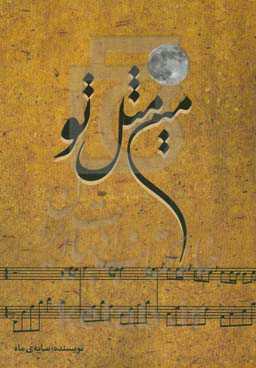 من مثل تو
نویسنده: سایه‌ی ماه